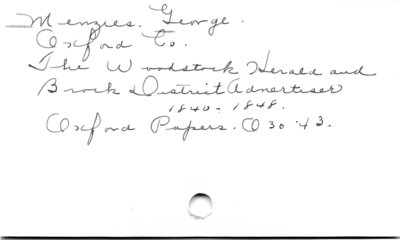 Menzies. George.
Oxford Co.
The Woodstock Herald and
Brock District Advertiser
1840-1848.
Oxford Papers. O 30-43.